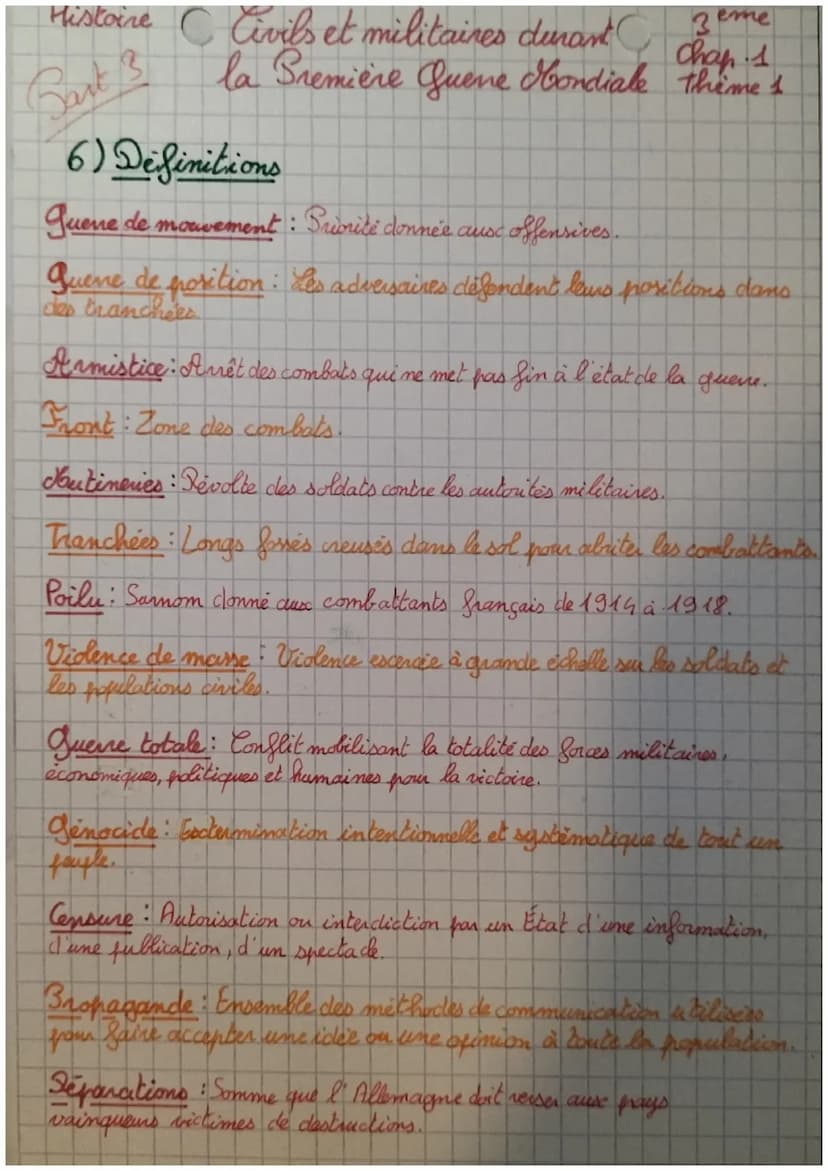 Histoire
Civils et militaires durant
3ème
Chap.1
Part 3
la Première Guerre Mondiale
Thème 1
6) Définitions
Guerre de mouvement : Priorité donnée aux offensives.
Guerre de position : Les adversaires défendent leurs positions dans
des tranchées
Armistice : Arrêt des combats qui ne met pas fin à l'état de la guerre.
Front : Zone des combats.
Mutineries : Révolte des soldats contre les autorités militaires.
Tranchées : Longs fossés creusés dans le sol pour abriter les combattants.
Poilu : Surnom donné aux combattants français de 1914 à 1918.
Violence de masse : Violence exercée à grande échelle sur les soldats et
les populations civiles.
Guerre totale : Conflit mobilisant la totalité des forces militaires,
économiques, politiques et humaines pour la victoire.
Génocide : Extermination intentionnelle et systématique de tout un
peuple.
Censure : Autorisation ou interdiction par un État d'une information,
d'une publication, d'un spectacle.
Propagande : Ensemble des méthodes de communication utilisées
pour faire accepter une idée ou une opinion à toute la population.
Réparations : Somme que l'Allemagne doit verser aux pays
vainqueurs victimes de destructions.